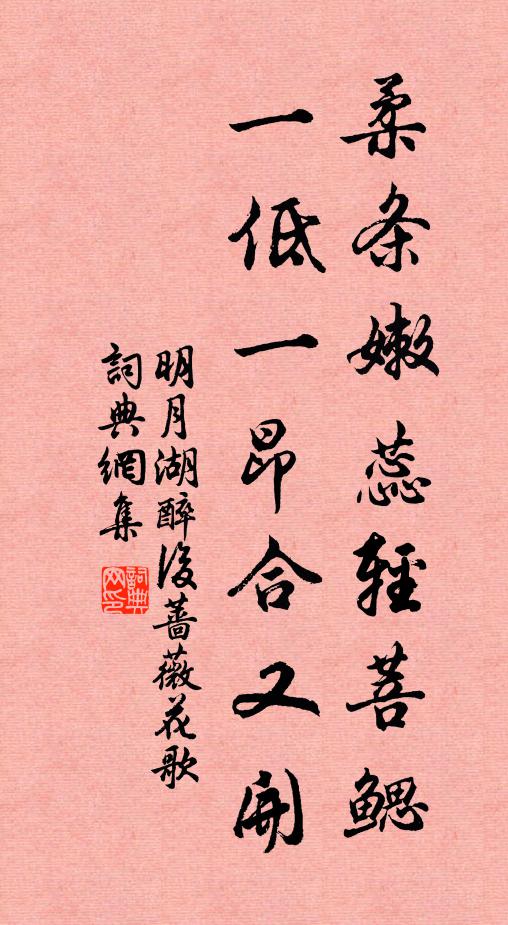 柔条嫩蕊轻菩鳃
一低一昂合又开
明月湖醉后蔷薇花歌
词典网集
词典网印